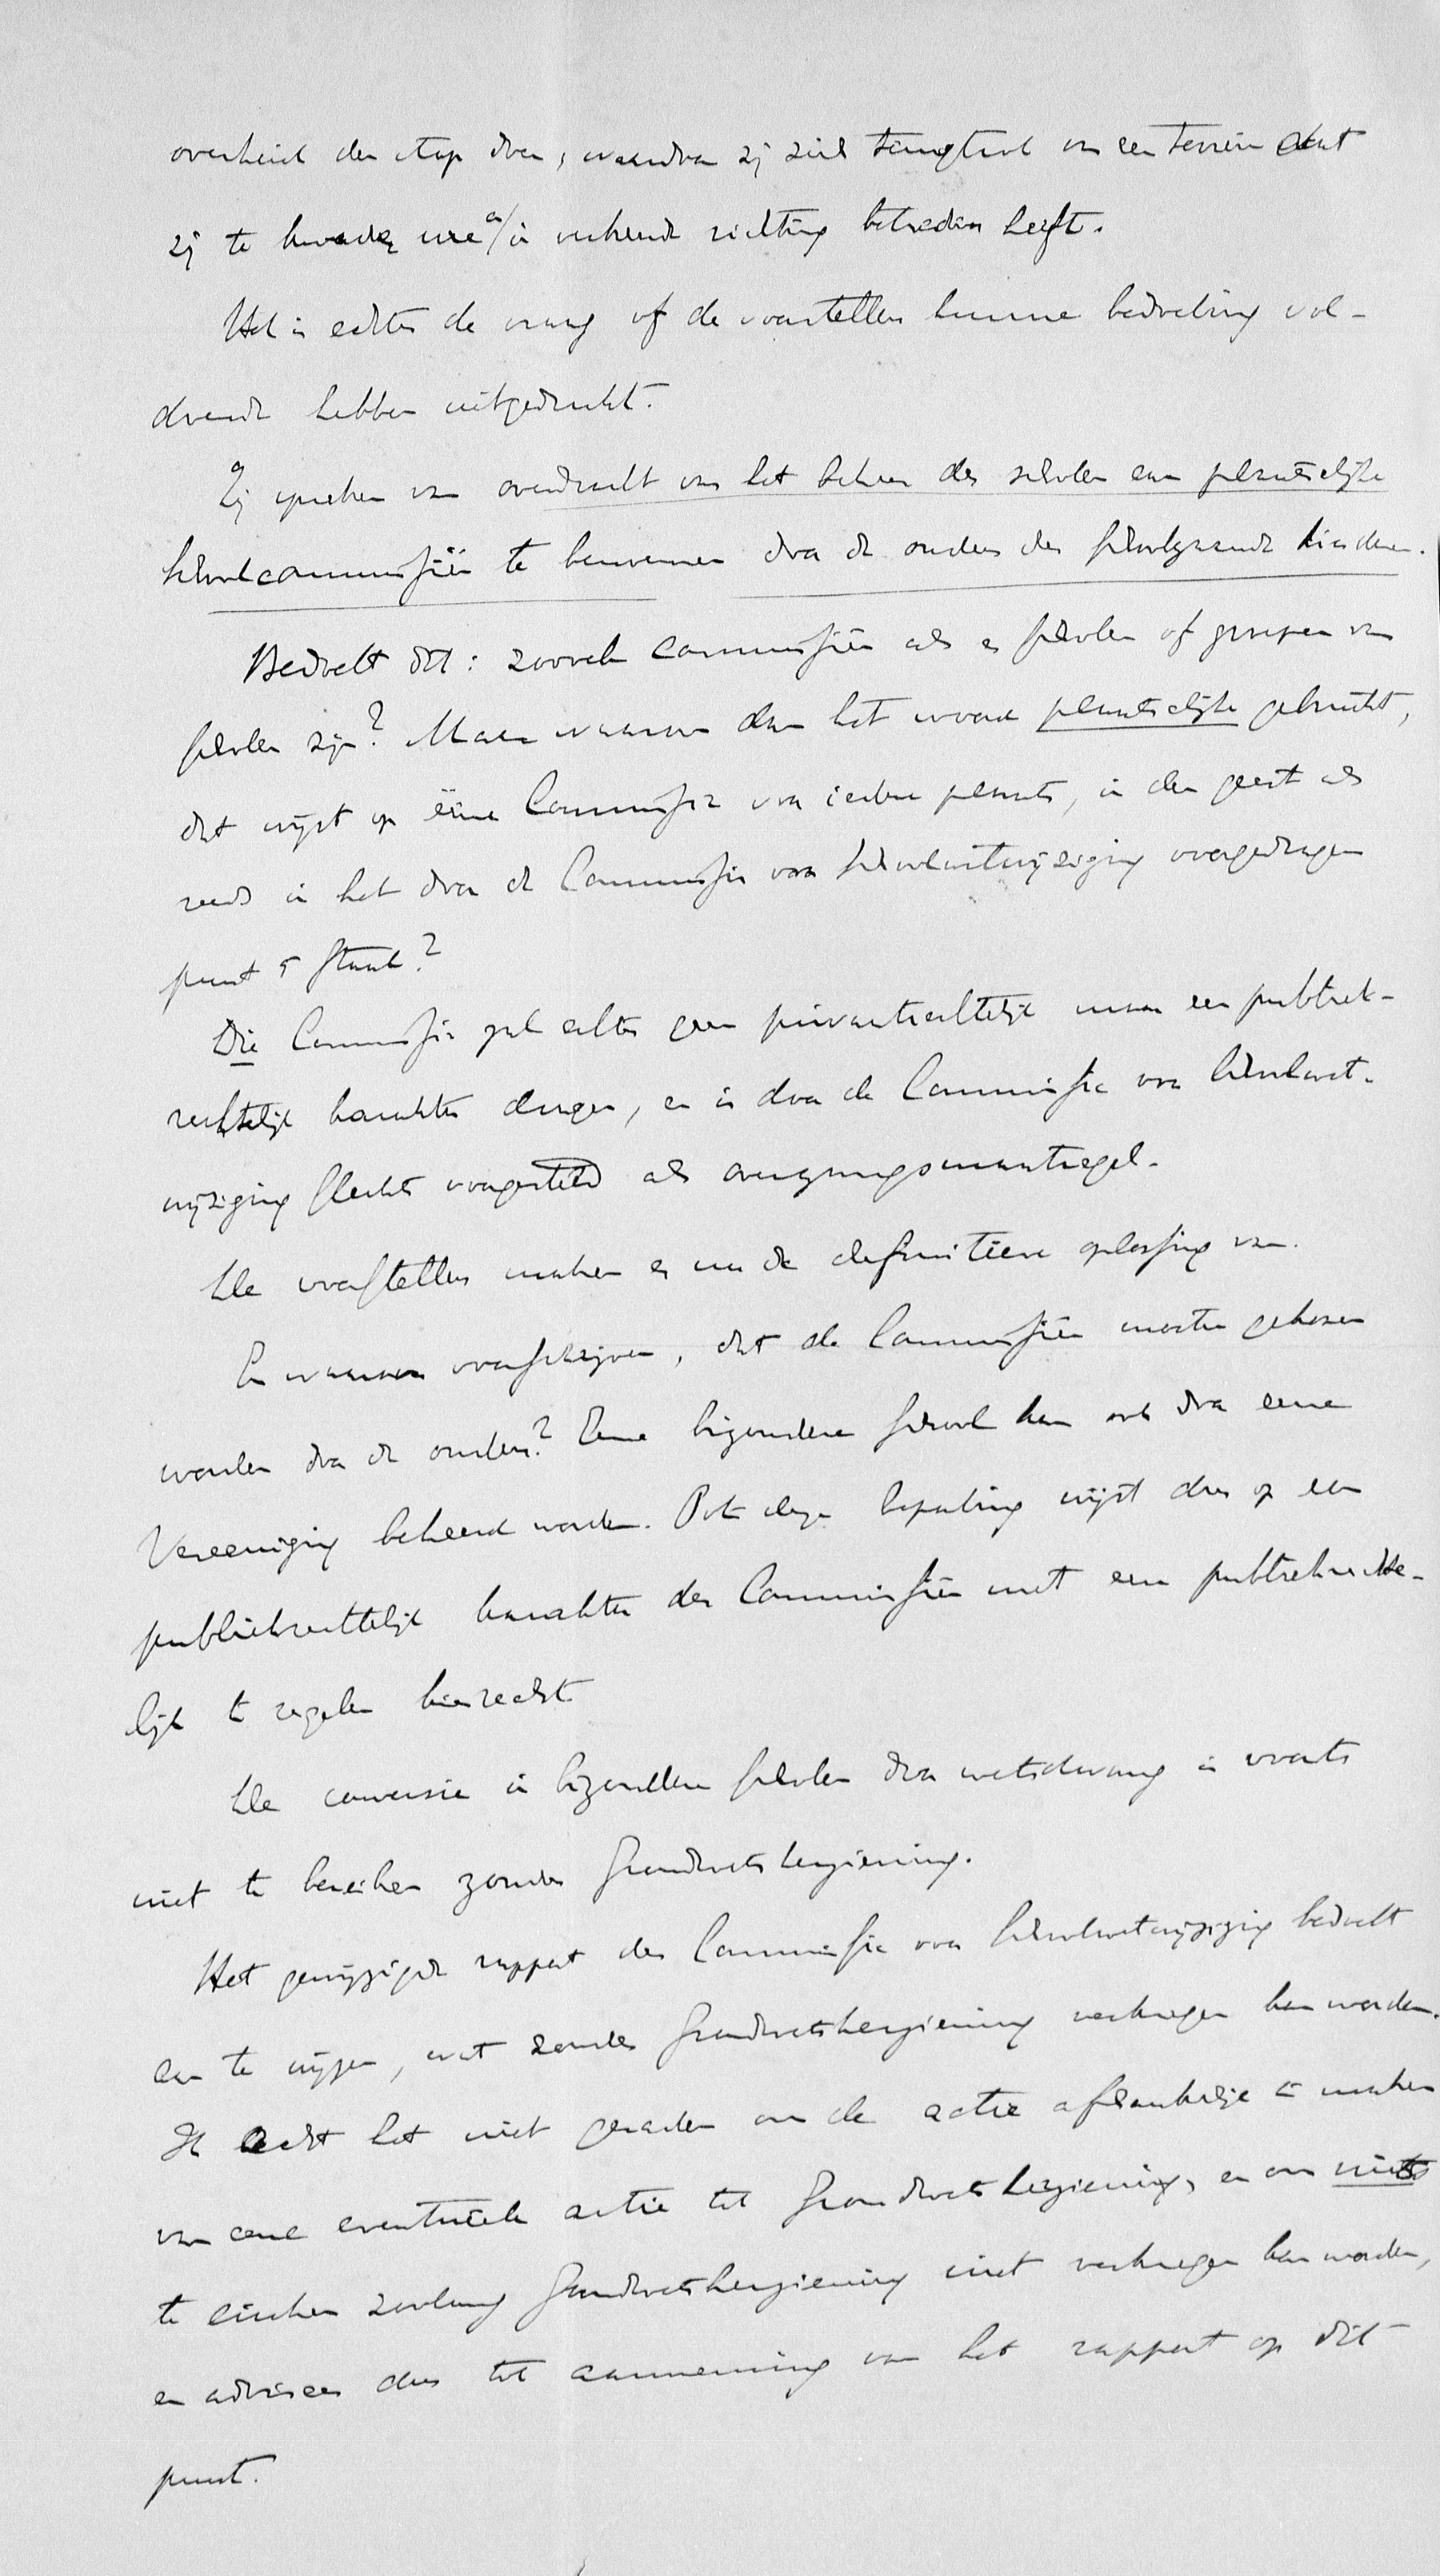 overheid den stap doen, waardoor zij zich terugtrok van een terrein dat
zij te kwader ure en/in verkeerde richting betreden heeft.
Het is echter de vraag of de voorstellers hunne bedoeling vol-
doende hebben uitgedrukt.
Zij spreken van overdracht van het beheer der scholen aan plaatselijke
schoolcommissiën te benoemen door de ouders der schoolgaande kinderen.
Bedoelt dit: zooveel commissiën als er scholen of groepen van
scholen zijn? Maar waarom dan het woord plaatselijke gebruikt,
dat wijst op ééne Commissie voor iedere plaats, in den geest als
reeds in het door de Commissie voor schoolwetwijziging voorgedragen
punt 5 staat?
Die Commissie zal echter geen privaatrechtelijk maar een publiek-
rechtelijk karakter dragen, en is door de Commissie voor schoolwet-
wijziging slechts voorgesteld als overgangsmaatregel.
De voorstellers maken er nu de definitieve oplossing van.
En waarom voorschrijven, dat de Commissiën moeten gekozen
worden door de ouders? Eene bijzondere school kan ook door eene
Vereeniging beheerd worden. Ook deze bepaling wijst dus op een
publiekrechtelijk karakter der Commissiën met een publiekrechte-
lijk te regelen kiesrecht.
De conversie in bijzondere scholen door wetsdwang is voorts
niet te bereiken zonder Grondwetsherziening.
Het gewijzigde rapport der Commissie voor Schoolwetwijziging bedoelt
aan te wijzen, wat zonder Grondwetsherziening verkregen kan worden.
Ik acht het niet geraden om de actie afhankelijk te maken
van eene eventueele actie tot Grondwetsherziening, en om niets
te eischen zoolang Grondwetsherziening niet verkregen kan worden,
en adviseer dus tot aanneming van het rapport op dit
punt.